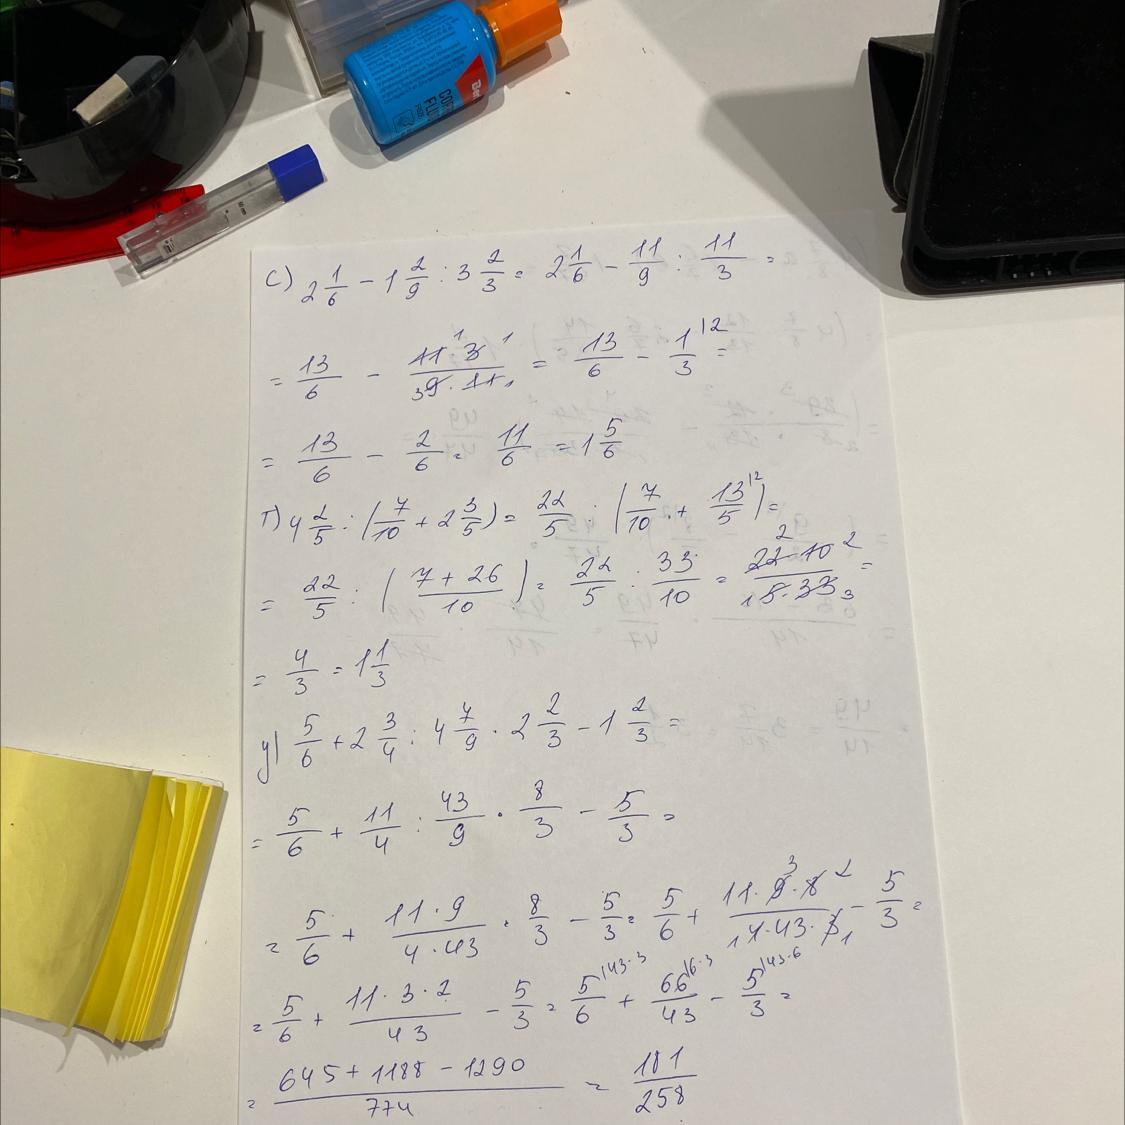 c) 2 1/6 - 1 2/9 : 3 2/3 = 2 1/6 - 11/9 : 11/3 =
= 13/6 - 11·3/9·11 = 13/6 - 1/3 |2 =
= 13/6 - 2/6 = 11/6 = 1 5/6
т) 4 2/5 : (7/10 + 2 3/5) = 22/5 : (7/10 + 13/5 |2) =
= 22/5 : (7 + 26/10) = 22/5 : 33/10 = 22·10/5·33 =
= 4/3 = 1 1/3
у) 5/6 + 2 3/4 : 4 7/9 · 2 2/3 - 1 2/3 =
= 5/6 + 11/4 : 43/9 · 8/3 - 5/3 =
= 5/6 + 11·9/4·43 · 8/3 - 5/3 = 5/6 + 11·9·8/4·43·3 - 5/3 =
= 5/6 + 11·3·2/43 - 5/3 = 5/6 |43·3 + 66/43 |6·3 - 5/3 |43·6 =
= 645 + 1188 - 1290/774 = 181/258